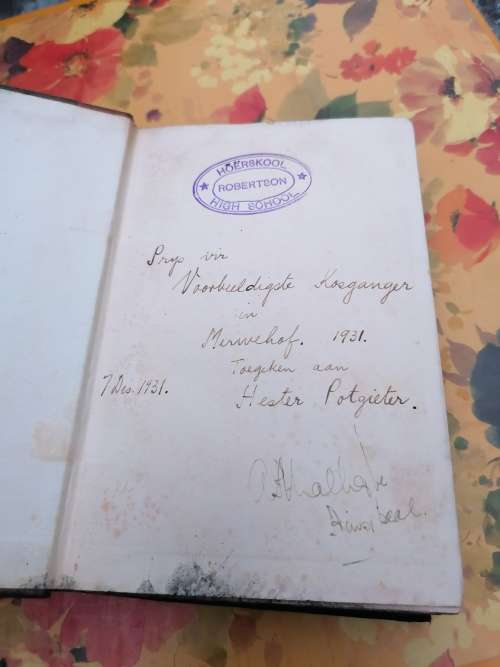 HOËRSKOOL
ROBERTSON
HIGH SCHOOL
Prys vir
Voorbeeldigste Kosganger
in
Merwehof. 1931.
Toegeken aan
7 Des. 1931. Hester Potgieter.